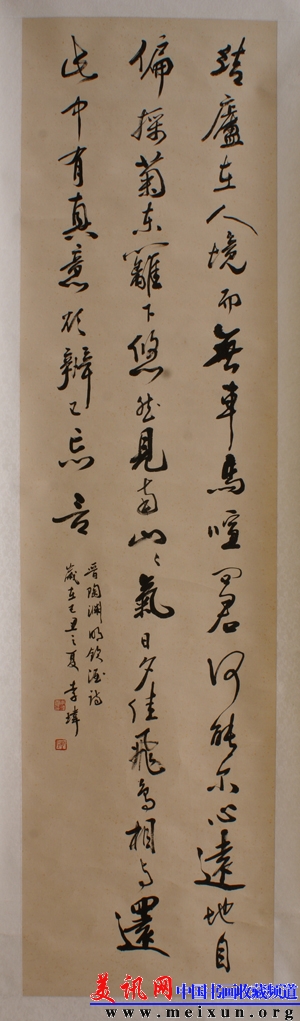 結廬在人境而無車馬喧問君何能尔心遠地自
偏採菊東籬下悠然見南山山氣日夕佳飛鳥相與還
此中有真意欲辯已忘言
晋陶渊明飲酒詩
歲在己丑之夏 李瑋
美讯网 中国书画收藏频道
www.meixun.org